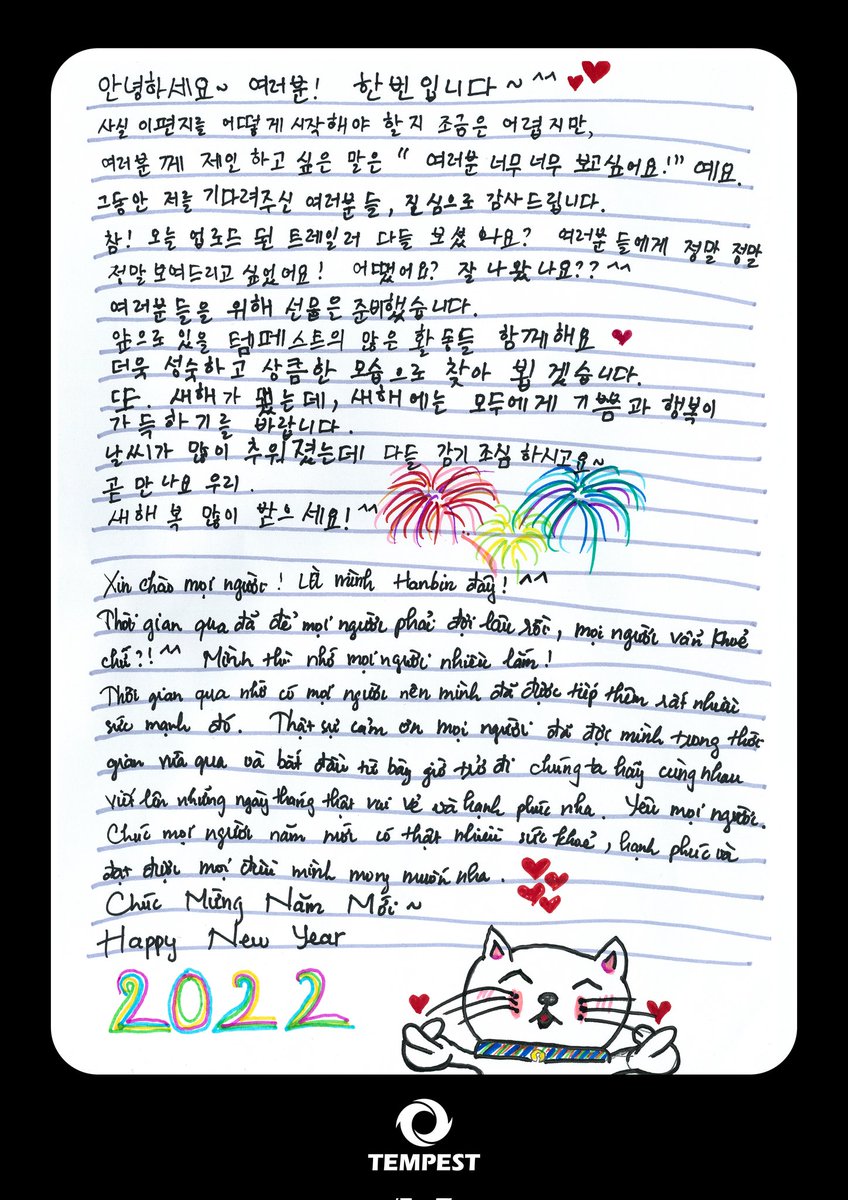 안녕하세요~ 여러분! 한빈입니다~ ^^
사실 이편지를 어떻게 시작해야 할지 조금은 어렵지만,
여러분께 제일 하고 싶은 말은 " 여러분 너무 너무 보고싶어요!" 예요.
그동안 저를 기다려주신 여러분들, 진심으로 감사드립니다.
참! 오늘 업로드 된 트레일러 다들 보셨나요? 여러분들에게 정말 정말
정말 보여드리고 싶었어요! 어땠어요? 잘 나왔나요?? ^^
여러분들을 위해 선물은 준비했습니다.
앞으로 있을 템페스트의 많은 활동들 함께해요
더욱 성숙하고 상큼한 모습으로 찾아 뵙겠습니다.
또. 새해가 됐는데, 새해에는 모두에게 기쁨과 행복이
가득하기를 바랍니다.
날씨가 많이 추워졌는데 다들 감기 조심 하시고요~
곧 만나요 우리.
새해 복 많이 받으세요! ^^
Xin chào mọi người! Là mình Hanbin đây! ^^
Thời gian qua đã để mọi người phải đợi lâu rồi, mọi người vẫn khoẻ
chứ?! ^^ Mình thì nhớ mọi người nhiều lắm!
Thời gian qua nhờ có mọi người nên mình đã được tiếp thêm rất nhiều
sức mạnh đó. Thật sự cảm ơn mọi người đã đợi mình trong thời
gian vừa qua và bắt đầu từ bây giờ trở đi chúng ta hãy cùng nhau
viết lên những ngày tháng thật vui vẻ và hạnh phúc nha. Yêu mọi người.
Chúc mọi người năm mới có thật nhiều sức khoẻ, hạnh phúc và
đạt được mọi điều mình mong muốn nha.
Chúc Mừng Năm Mới ~
Happy New Year
2022
TEMPEST